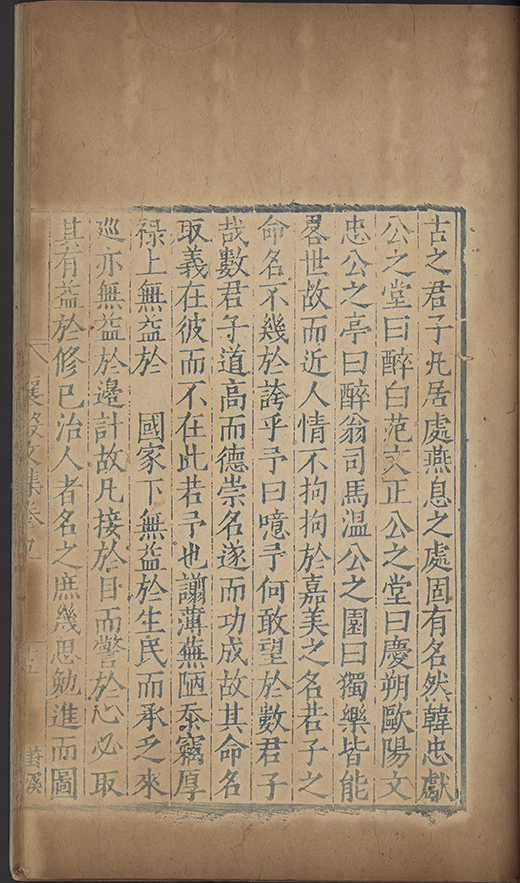 古之君子凡居處燕息之處固有名然韓忠獻
公之堂曰醉白范文正公之堂曰慶朔歐陽文
忠公之亭曰醉翁司馬溫公之園曰獨樂皆能
畧世故而近人情不拘拘於嘉美之名若子之
命名不幾於誇乎予曰噫予何敢望於數君子
哉數君子道高而德崇名遂而功成故其命名
取義在彼而不在此若予也譾薄蕪陋忝竊厚
祿上無益於　國家下無益於生民而承乏來
廵亦無益於邊計故凡接於目而警於心必取
其有益於修已治人者名之庶幾思勉進而圖
襄毅文集卷